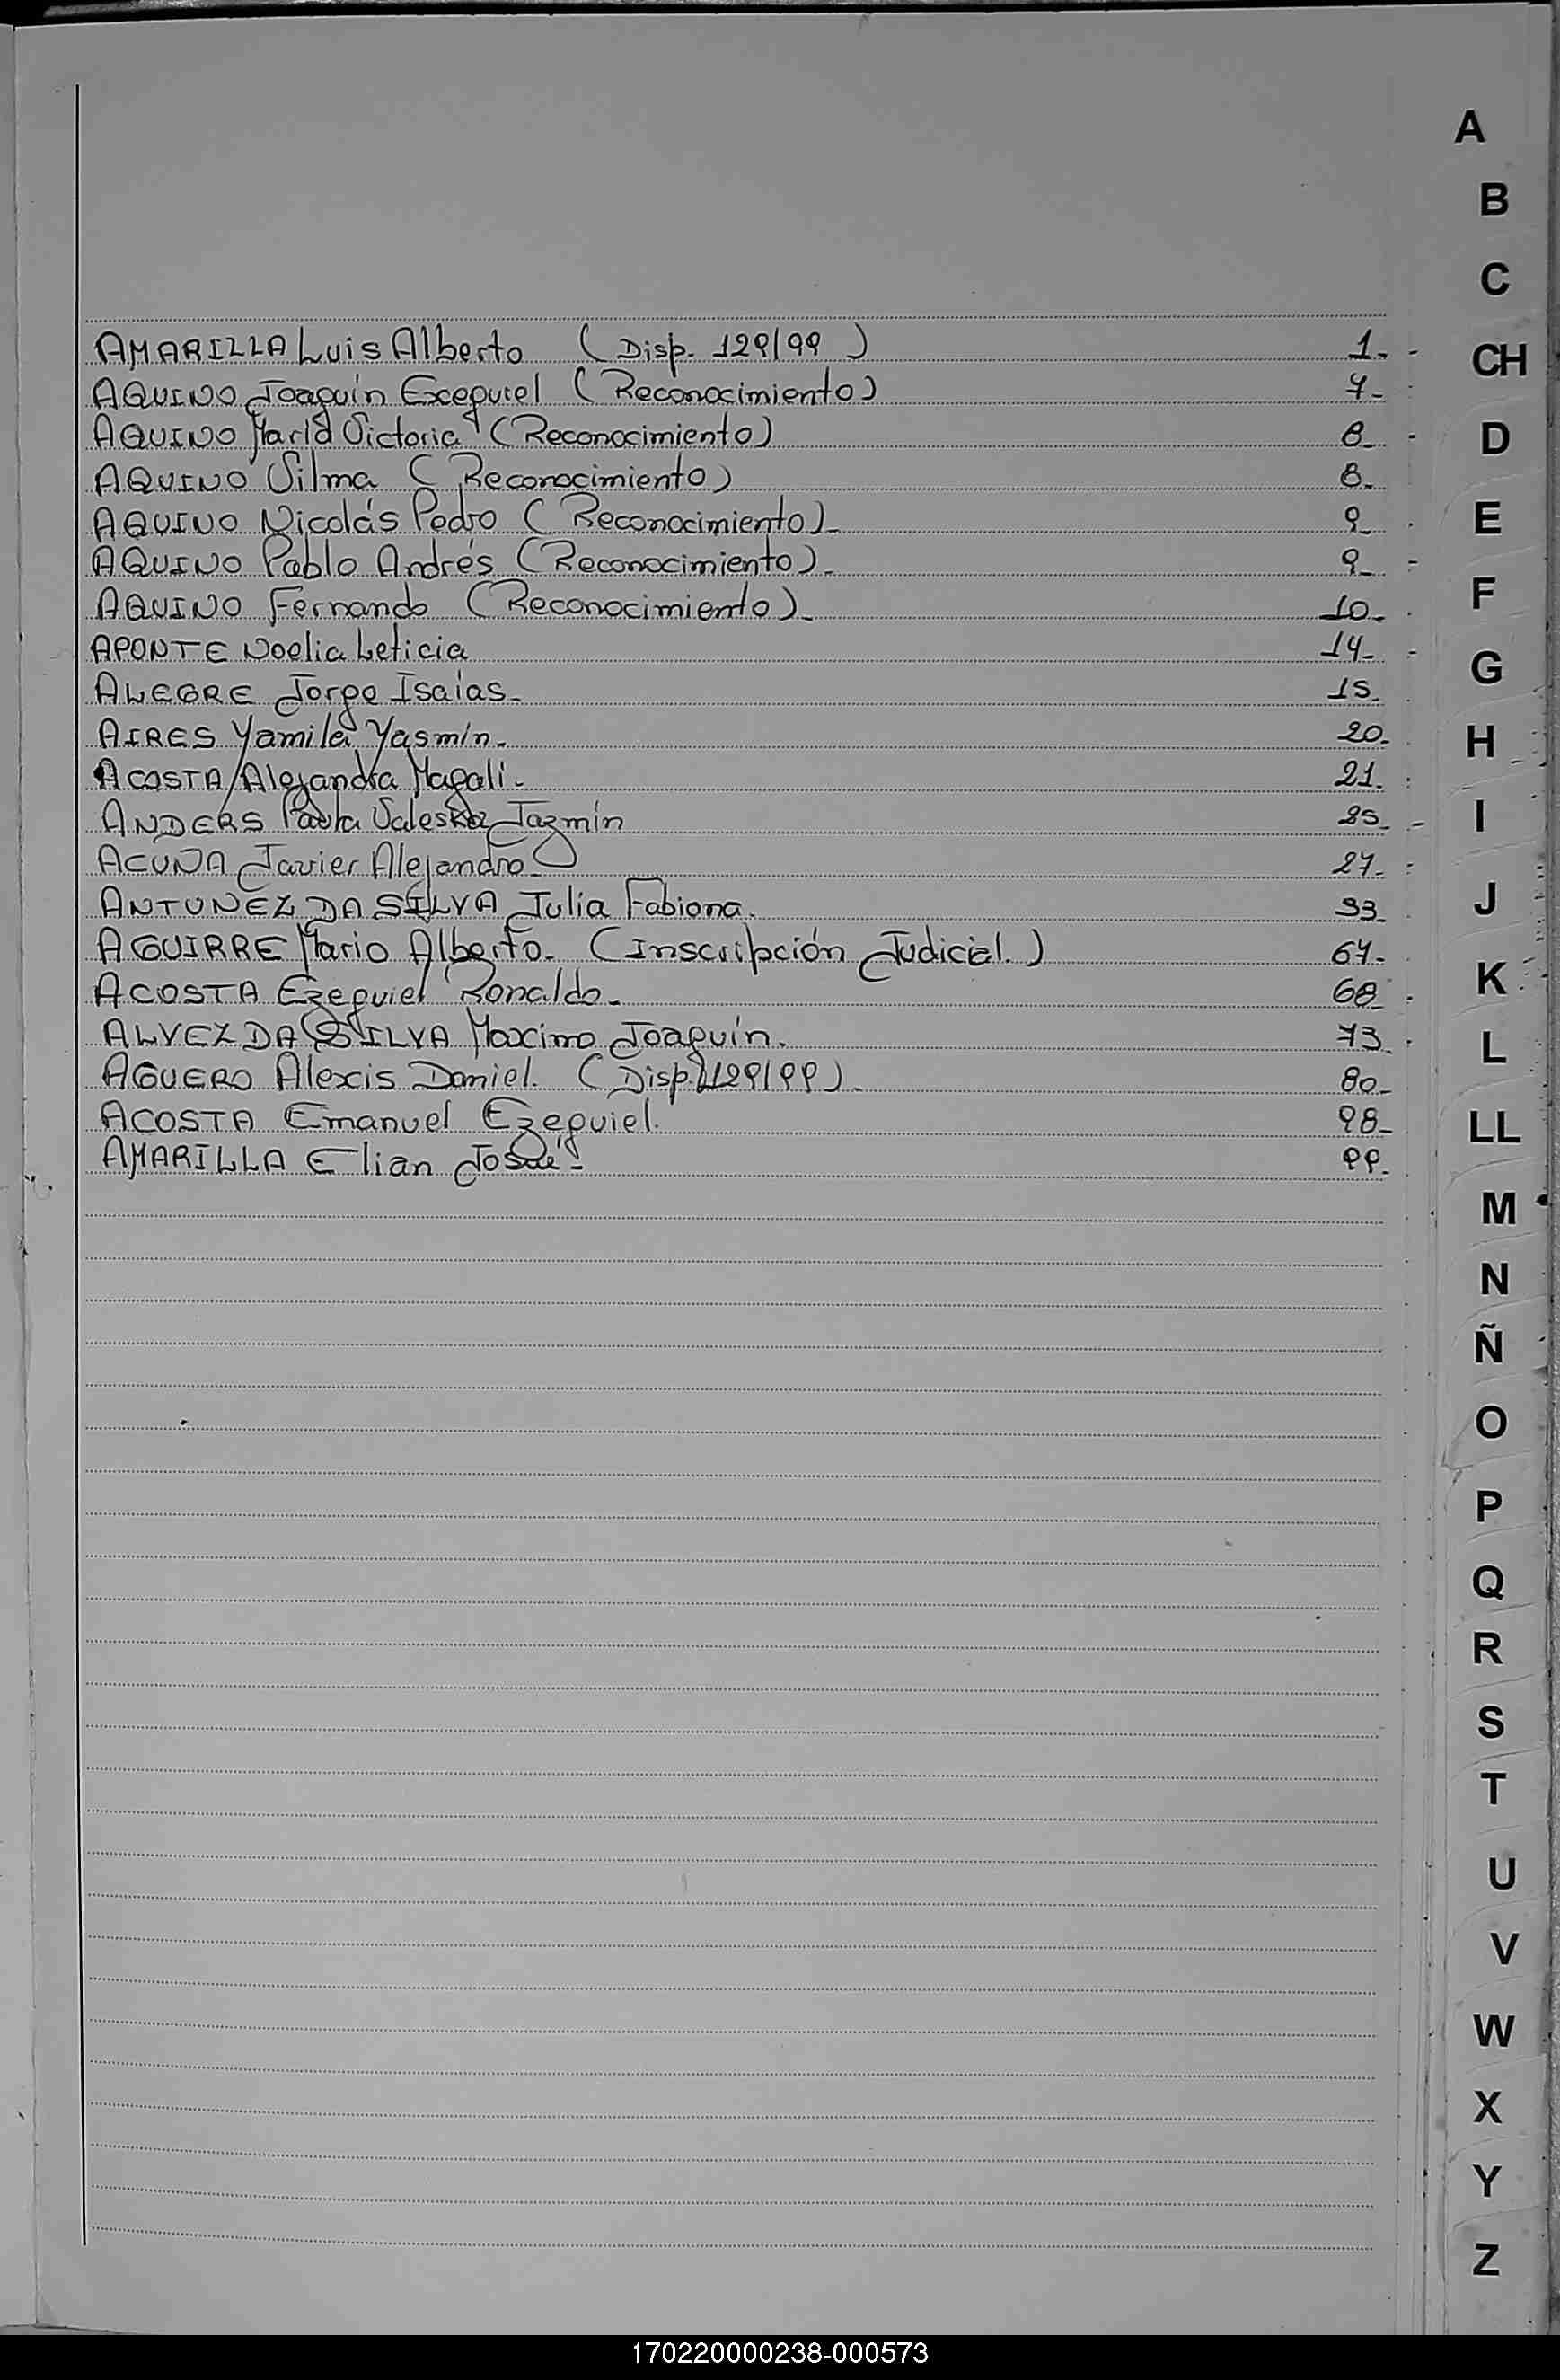 A
B
C
AMARILLA Luis Alberto (Disp. 129/99) 1.-
CH
AQUINO Joaquín Exequiel (Reconocimiento) 7-
AQUINO María Victoria (Reconocimiento) 8-
D
AQUINO Silma (Reconocimiento) 8-
AQUINO Nicolás Pedro (Reconocimiento)- 9-
E
AQUINO Pablo Andrés (Reconocimiento)- 9-
AQUINO Fernando (Reconocimiento)- 10-
F
APONTE Noelia Leticia 14-
G
ALEGRE Jorge Isaías- 15-
AIRES Yamila Yasmín- 20-
H
ACOSTA Alejandra Magalí- 21.
ANDERS Paola Valeska Jazmín 25-
I
ACUÑA Javier Alejandro- 27-
ANTUNEZ DA SILVA Julia Fabiana. 33
J
AGUIRRE Mario Alberto. (Inscripción Judicial.) 67-
K
ACOSTA Ezequiel Ronaldo- 68-
ALVEZ DA SILVA Maximo Joaquín. 73
L
AGUERO Alexis Daniel. (Disp. 129/99)- 80-
ACOSTA Emanuel Ezequiel. 98-
LL
AMARILLA Elian Josué- 99-
M
N
Ñ
O
P
Q
R
S
T
U
V
W
X
Y
Z
170220000238-000573